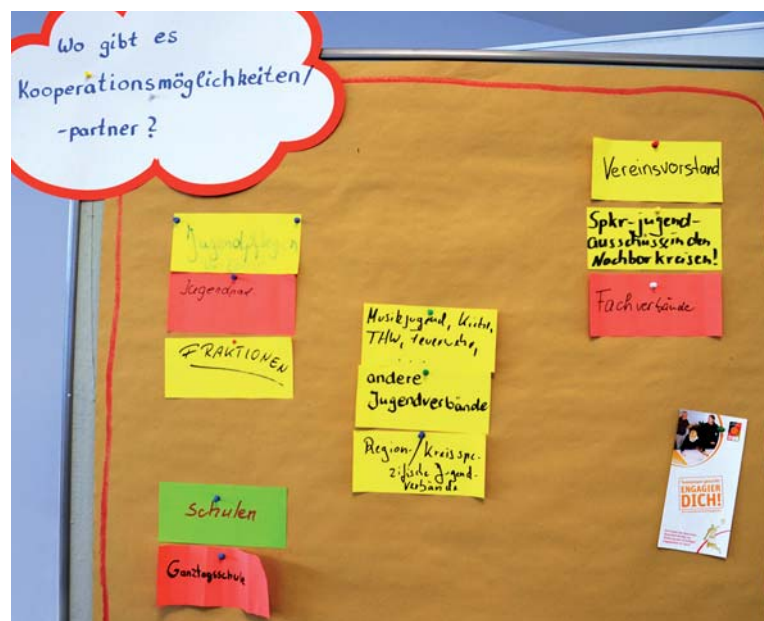 Wo gibt es
Kooperationsmöglichkeiten/
-partner?
Jugendpfleger
FRAKTIONEN
Schulen
Ganztagsschule
Musikjugend, Kirche,
THW, Feuerwehr,
....
andere
Jugendverbände
Region-/Kreisspe-
zifische Jugend-
verbände
Vereinsvorstand
Spkr-jugend-
ausschüsse in den
Nachbarkreisen!
Fachverbände
ENGAGIER
DICH!